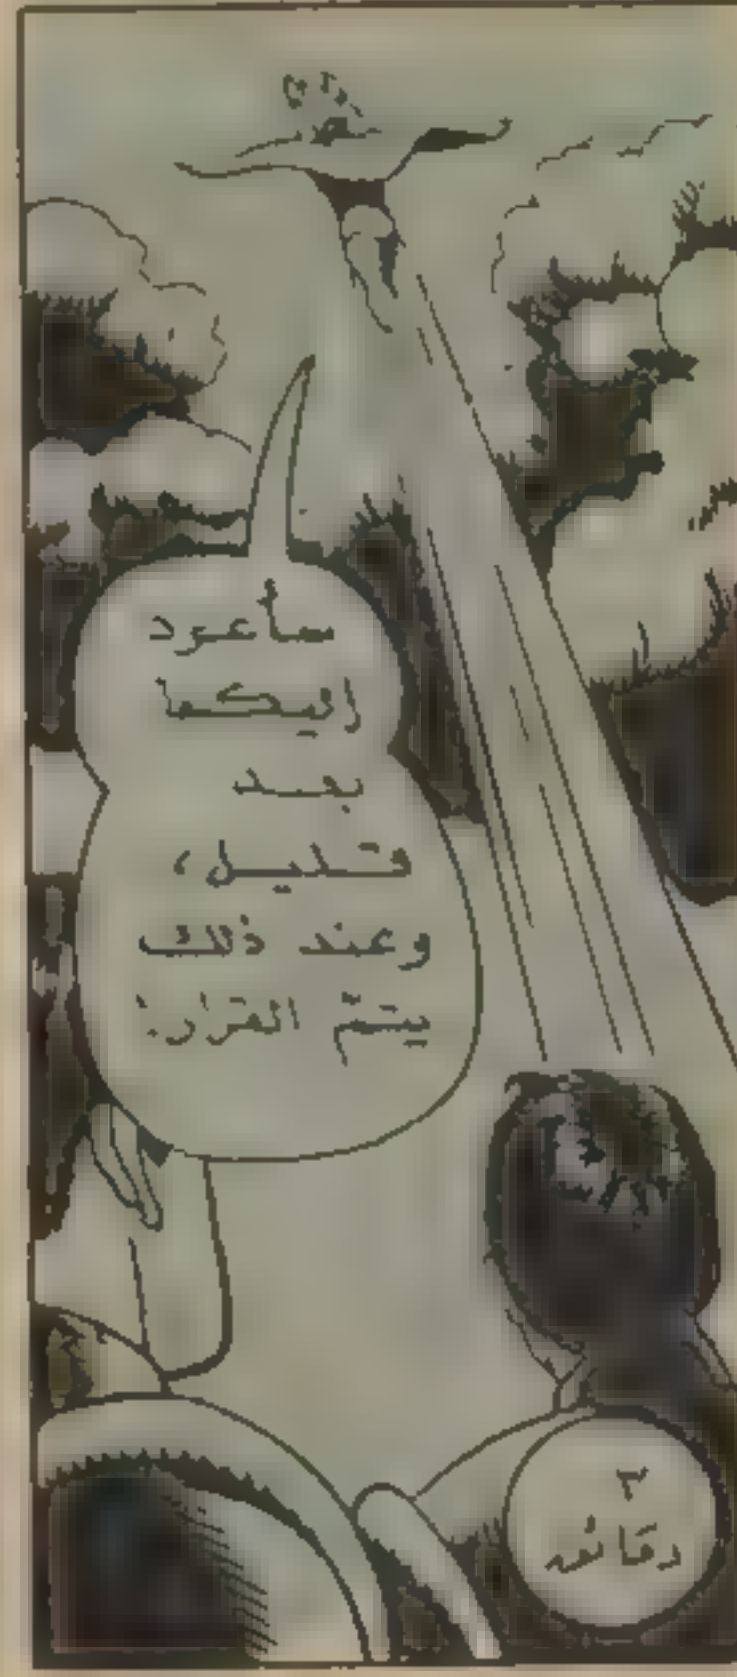 سأعود
إليكما
بعد
قليل،
وعند ذلك
يتمّ القرار!
٣
دقائق